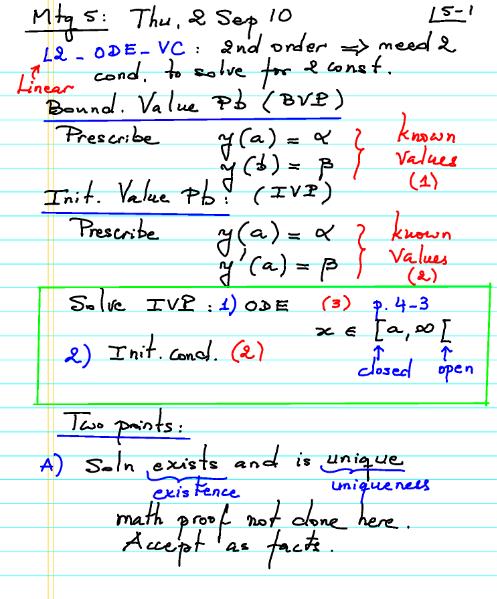 Mtg 5: Thu, 2 Sep 10 L5-1
L2_ODE_VC: 2nd order ⇒ need 2
cond. to solve for 2 const.
Linear
Bound. Value Pb (BVP)
Prescribe y(a) = α } known
y(b) = β values
(1)
Init. Value Pb: (IVP)
Prescribe y(a) = α } known
y'(a) = β values
(2)
Solve IVP: 1) ODE (3) p. 4-3
x ∈ [a, ∞[
2) Init. cond. (2) closed open
Two points:
A) Soln exists and is unique
existence uniqueness
math proof not done here.
Accept as facts.